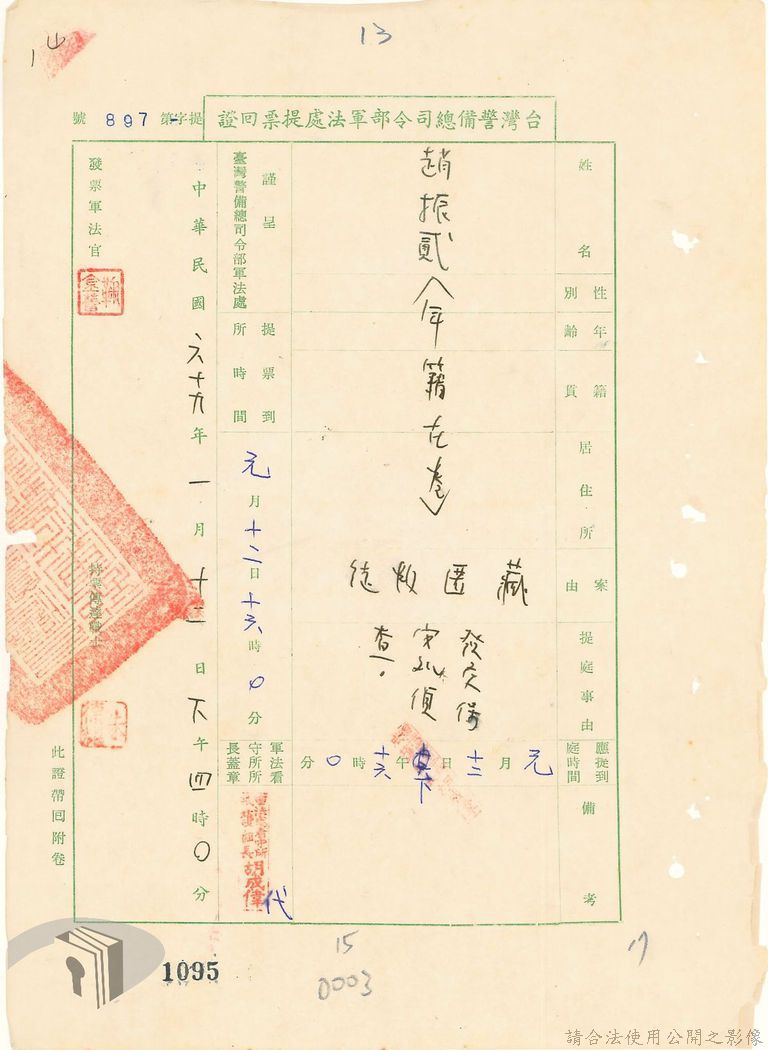 13
台灣警備總司令部軍法處提票回證
提字第 897 號
姓名
性別
年齡
籍貫
居住所
案由
提庭事由
應提到庭時間
備考
趙振貳
年籍在卷
藏匿叛徒
發交保
安處偵
查。
元月十二日下午十六時0分
提票到所時間
元月十二日十六時0分
軍法看守所所長蓋章
胡成偉
代
謹呈
臺灣警備總司令部軍法處
中華民國六十九年一月十二日下午四時0分
發票軍法官
持票傳達戰士
此證帶回附卷
1095
15
0003
17
請合法使用公開之影像